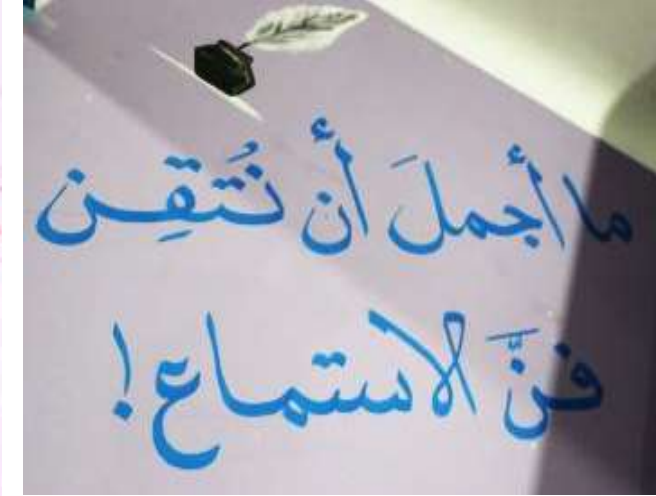 ما أجملَ أن نُتقِن
فنَّ الاستماع!